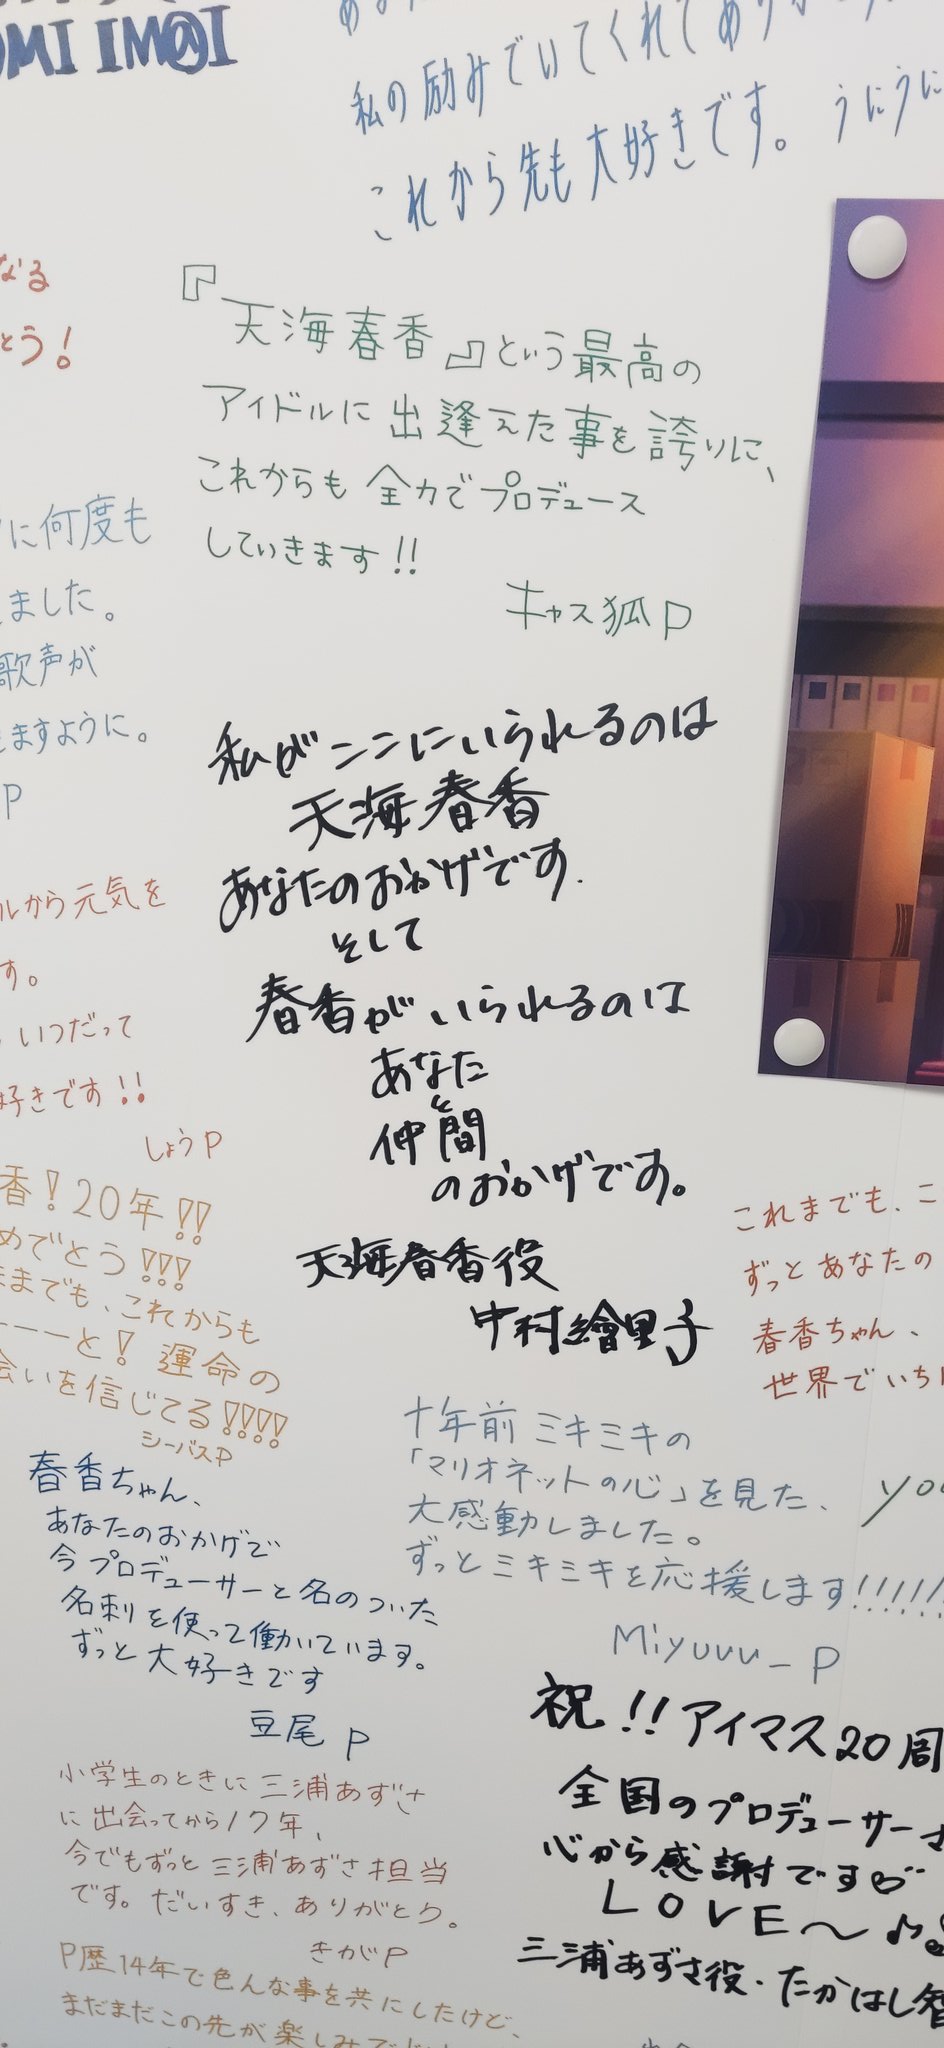 OMI IM@I
私の励みでいてくれてあり
これから先も大好きです。 うにうに
なる
とう!
『天海春香』という最高の
アイドルに出逢えた事を誇りに、
これからも全力でプロデュース
していきます!!
キャス狐P
に何度も
ました。
歌声が
ますように。
P
私がここにいられるのは
天海春香
あなたのおかげです.
そして
春香がいられるのは
あなた
と
仲間
のおかげです。
天海春香役
中村繪里子
ルから元気を
す。
いつだって
好きです!!
しょうP
香!20年!!
めでとう!!!
までも、これからも
ーーーと! 運命の
会いを信じてる!!!!
シーバスP
これまでも、こ
ずっとあなたの
春香ちゃん、
世界でいち
十年前ミキミキの
「マリオネットの心」を見た、
大感動しました。
ずっとミキミキを応援します!!!!!!
Miyuuu_P
you
春香ちゃん、
あなたのおかげで
今プロデューサーと名のついた
名刺を使って働いています。
ずっと大好きです
豆尾P
祝!!アイマス20周
全国のプロデューサーさ
心から感謝です♡
LOVE〜♪
三浦あずさ役・たかはし智
小学生のときに三浦あずさ
に出会ってから17年、
今でもずっと三浦あずさ担当
です。だいすき、ありがとう。
きがP
P歴14年で色んな事を共にしたけど、
まだまだこの先が楽しみで